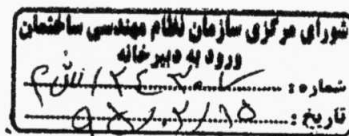 شورای مرکزی سازمان نظام مهندسی ساختمان
ورود به دبیرخانه
شماره:
تاریخ: ۹۸/۲/۱۵